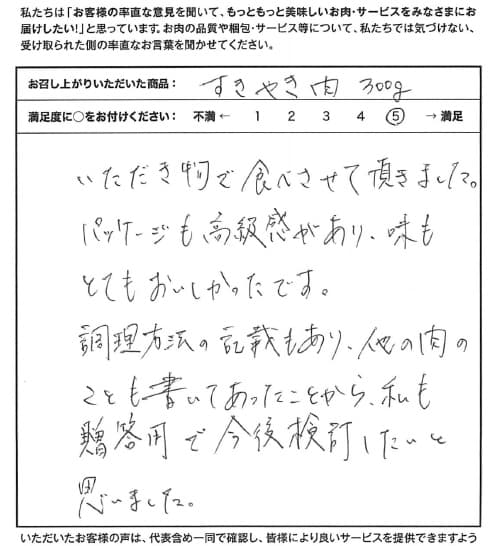 私たちは「お客様の率直な意見を聞いて、もっともっと美味しいお肉・サービスをみなさまにお
届けしたい！」と思っています。お肉の品質や梱包・サービス等について、私たちでは気づけない、
受け取られた側の率直なお言葉を聞かせてください。
お召し上がりいただいた商品： すきやき肉 300g
満足度に○をお付けください： 不満 ← 1 2 3 4 ⑤ → 満足
いただき物で食べさせて頂きました。
パッケージも高級感があり、味も
とてもおいしかったです。
調理方法の記載もあり、他の肉の
ことも書いてあったことから、私も
贈答用で今後検討したいと
思いました。
いただいたお客様の声は、代表含め一同で確認し、皆様により良いサービスを提供できますよう